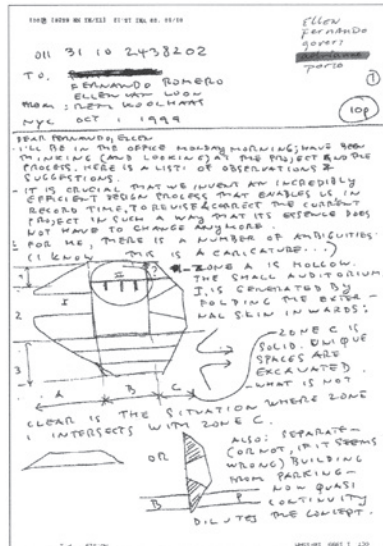 Ellen
Fernando
govert
porto
1
10p
011 31 10 2438202
TO:
FERNANDO ROMERO
ELLEN VAN LOON
FROM: REM KOOLHAAS
NYC OCT 1 1999
DEAR FERNANDO, ELLEN
I'LL BE IN THE OFFICE MONDAY MORNING; HAVE BEEN
THINKING (AND LOOKING) AT THE PROJECT AND THE
PROCESS. HERE IS A LIST OF OBSERVATIONS &
SUGGESTIONS.
- IT IS CRUCIAL THAT WE INVENT AN INCREDIBLY
EFFICIENT DESIGN PROCESS THAT ENABLES US IN
RECORD TIME, TO REVISE & CORRECT THE CURRENT
PROJECT IN SUCH A WAY THAT ITS ESSENCE DOES
NOT HAVE TO CHANGE ANYMORE.
FOR ME, THERE IS A NUMBER OF AMBIGUITIES.
(I KNOW THIS IS A CARICATURE...)
- ZONE A IS HOLLOW.
THE SMALL AUDITORIUM
I, IS GENERATED BY
FOLDING THE EXTER-
NAL SKIN INWARDS;
1
I
II
?
2
3
A B C
- ZONE C IS
SOLID. UNIQUE
SPACES ARE
EXCAVATED.
- WHAT IS NOT
CLEAR IS THE SITUATION WHERE ZONE
1 INTERSECTS WITH ZONE C.
OR
B
P
ALSO: SEPARATE-
(OR NOT, IF IT SEEMS
WRONG) BUILDING
FROM PARKING -
NOW QUASI
CONTINUITY
DILUTES THE CONCEPT.